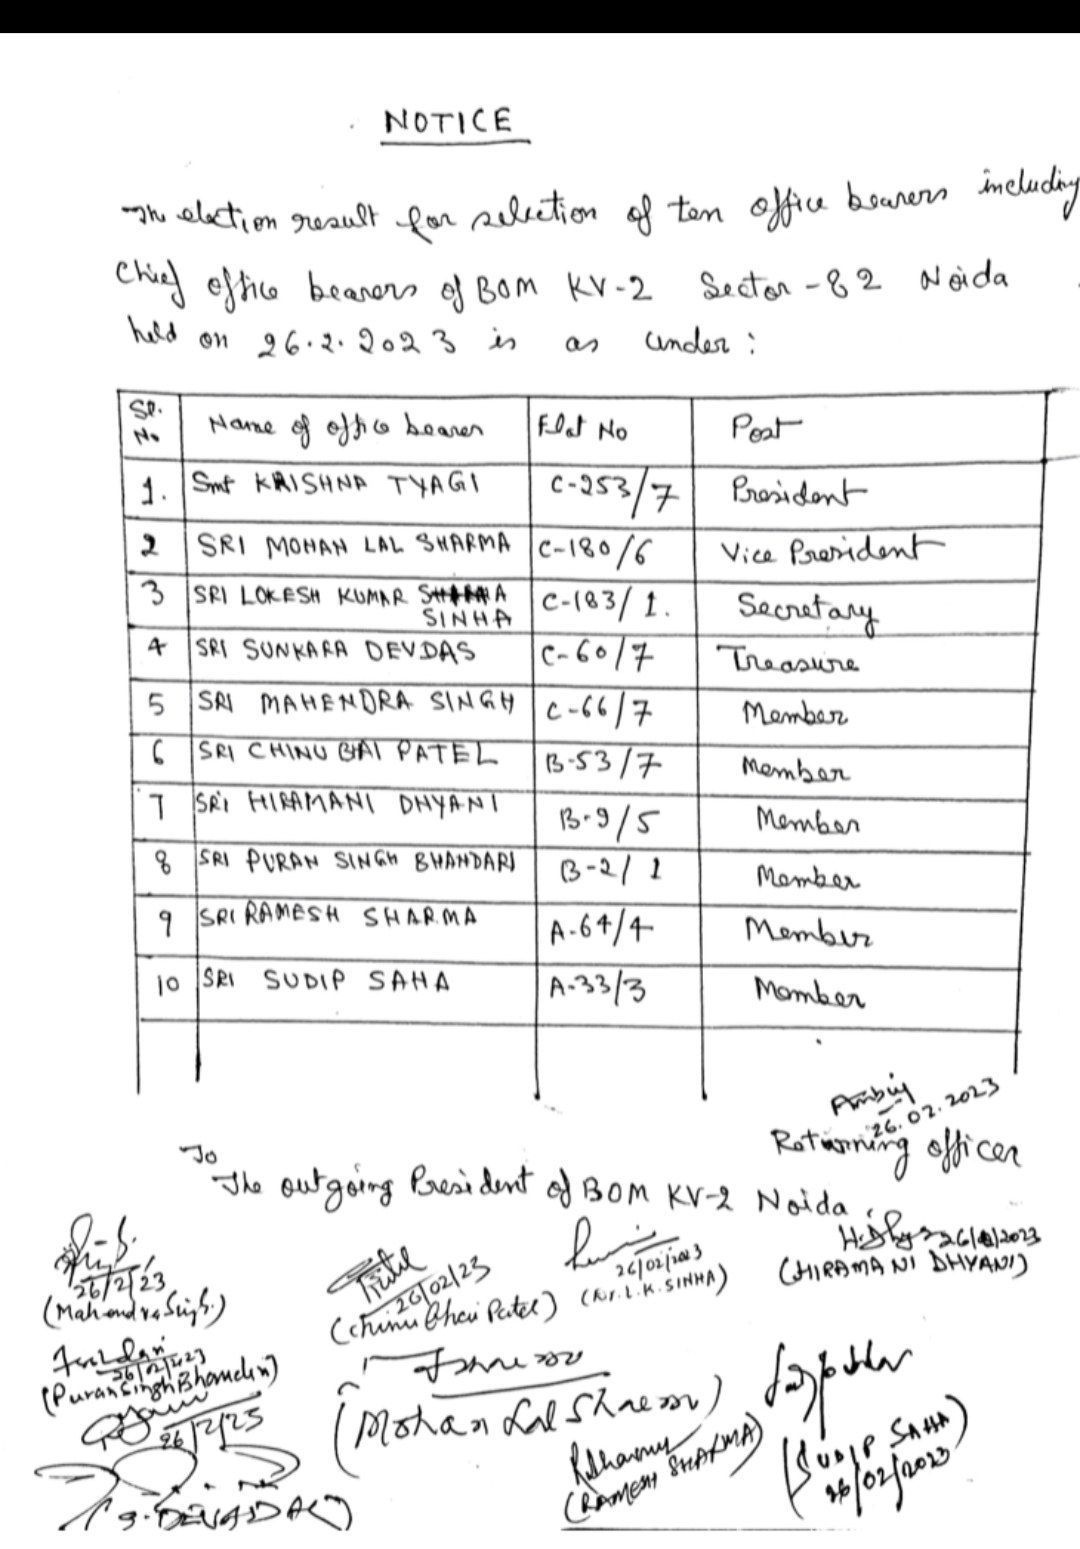 NOTICE
The election result for selection of ten office bearers including
Chief office bearers of BOM KV-2 Sector-82 Noida
held on 26.2.2023 is as under:
Sr. No Name of office bearer Flat No Post
1. Smt KRISHNA TYAGI C-253/7 President
2 SRI MOHAN LAL SHARMA C-180/6 Vice President
3 SRI LOKESH KUMAR C-183/1. Secretary
SINHA
4 SRI SUNKARA DEVDAS C-60/7 Treasure
5 SRI MAHENDRA SINGH C-66/7 Member
6 SRI CHINU BHAI PATEL B-53/7 Member
7 SRI HIRAMANI DHYANI B-9/5 Member
8 SRI PURAN SINGH BHANDARI B-2/1 Member
9 SRI RAMESH SHARMA A-64/4 Member
10 SRI SUDIP SAHA A-33/3 Member
26.02.2023
Returning officer
To
The outgoing President of BOM KV-2 Noida
26/2/23
(Mahendra Singh.)
Patel
26/02/23
(Chinu Bhai Patel)
26/02/2023
L.K.SINHA)
26/2/2023
(HIRAMANI DHYANI)
26/02/2023
(Puran Singh Bhandari)
26/2/23
(S. DEVADAS)
(Mohan Lal Sharma)
RSharma
(RAMESH SHARMA)
(SUDIP SAHA)
26/02/2023